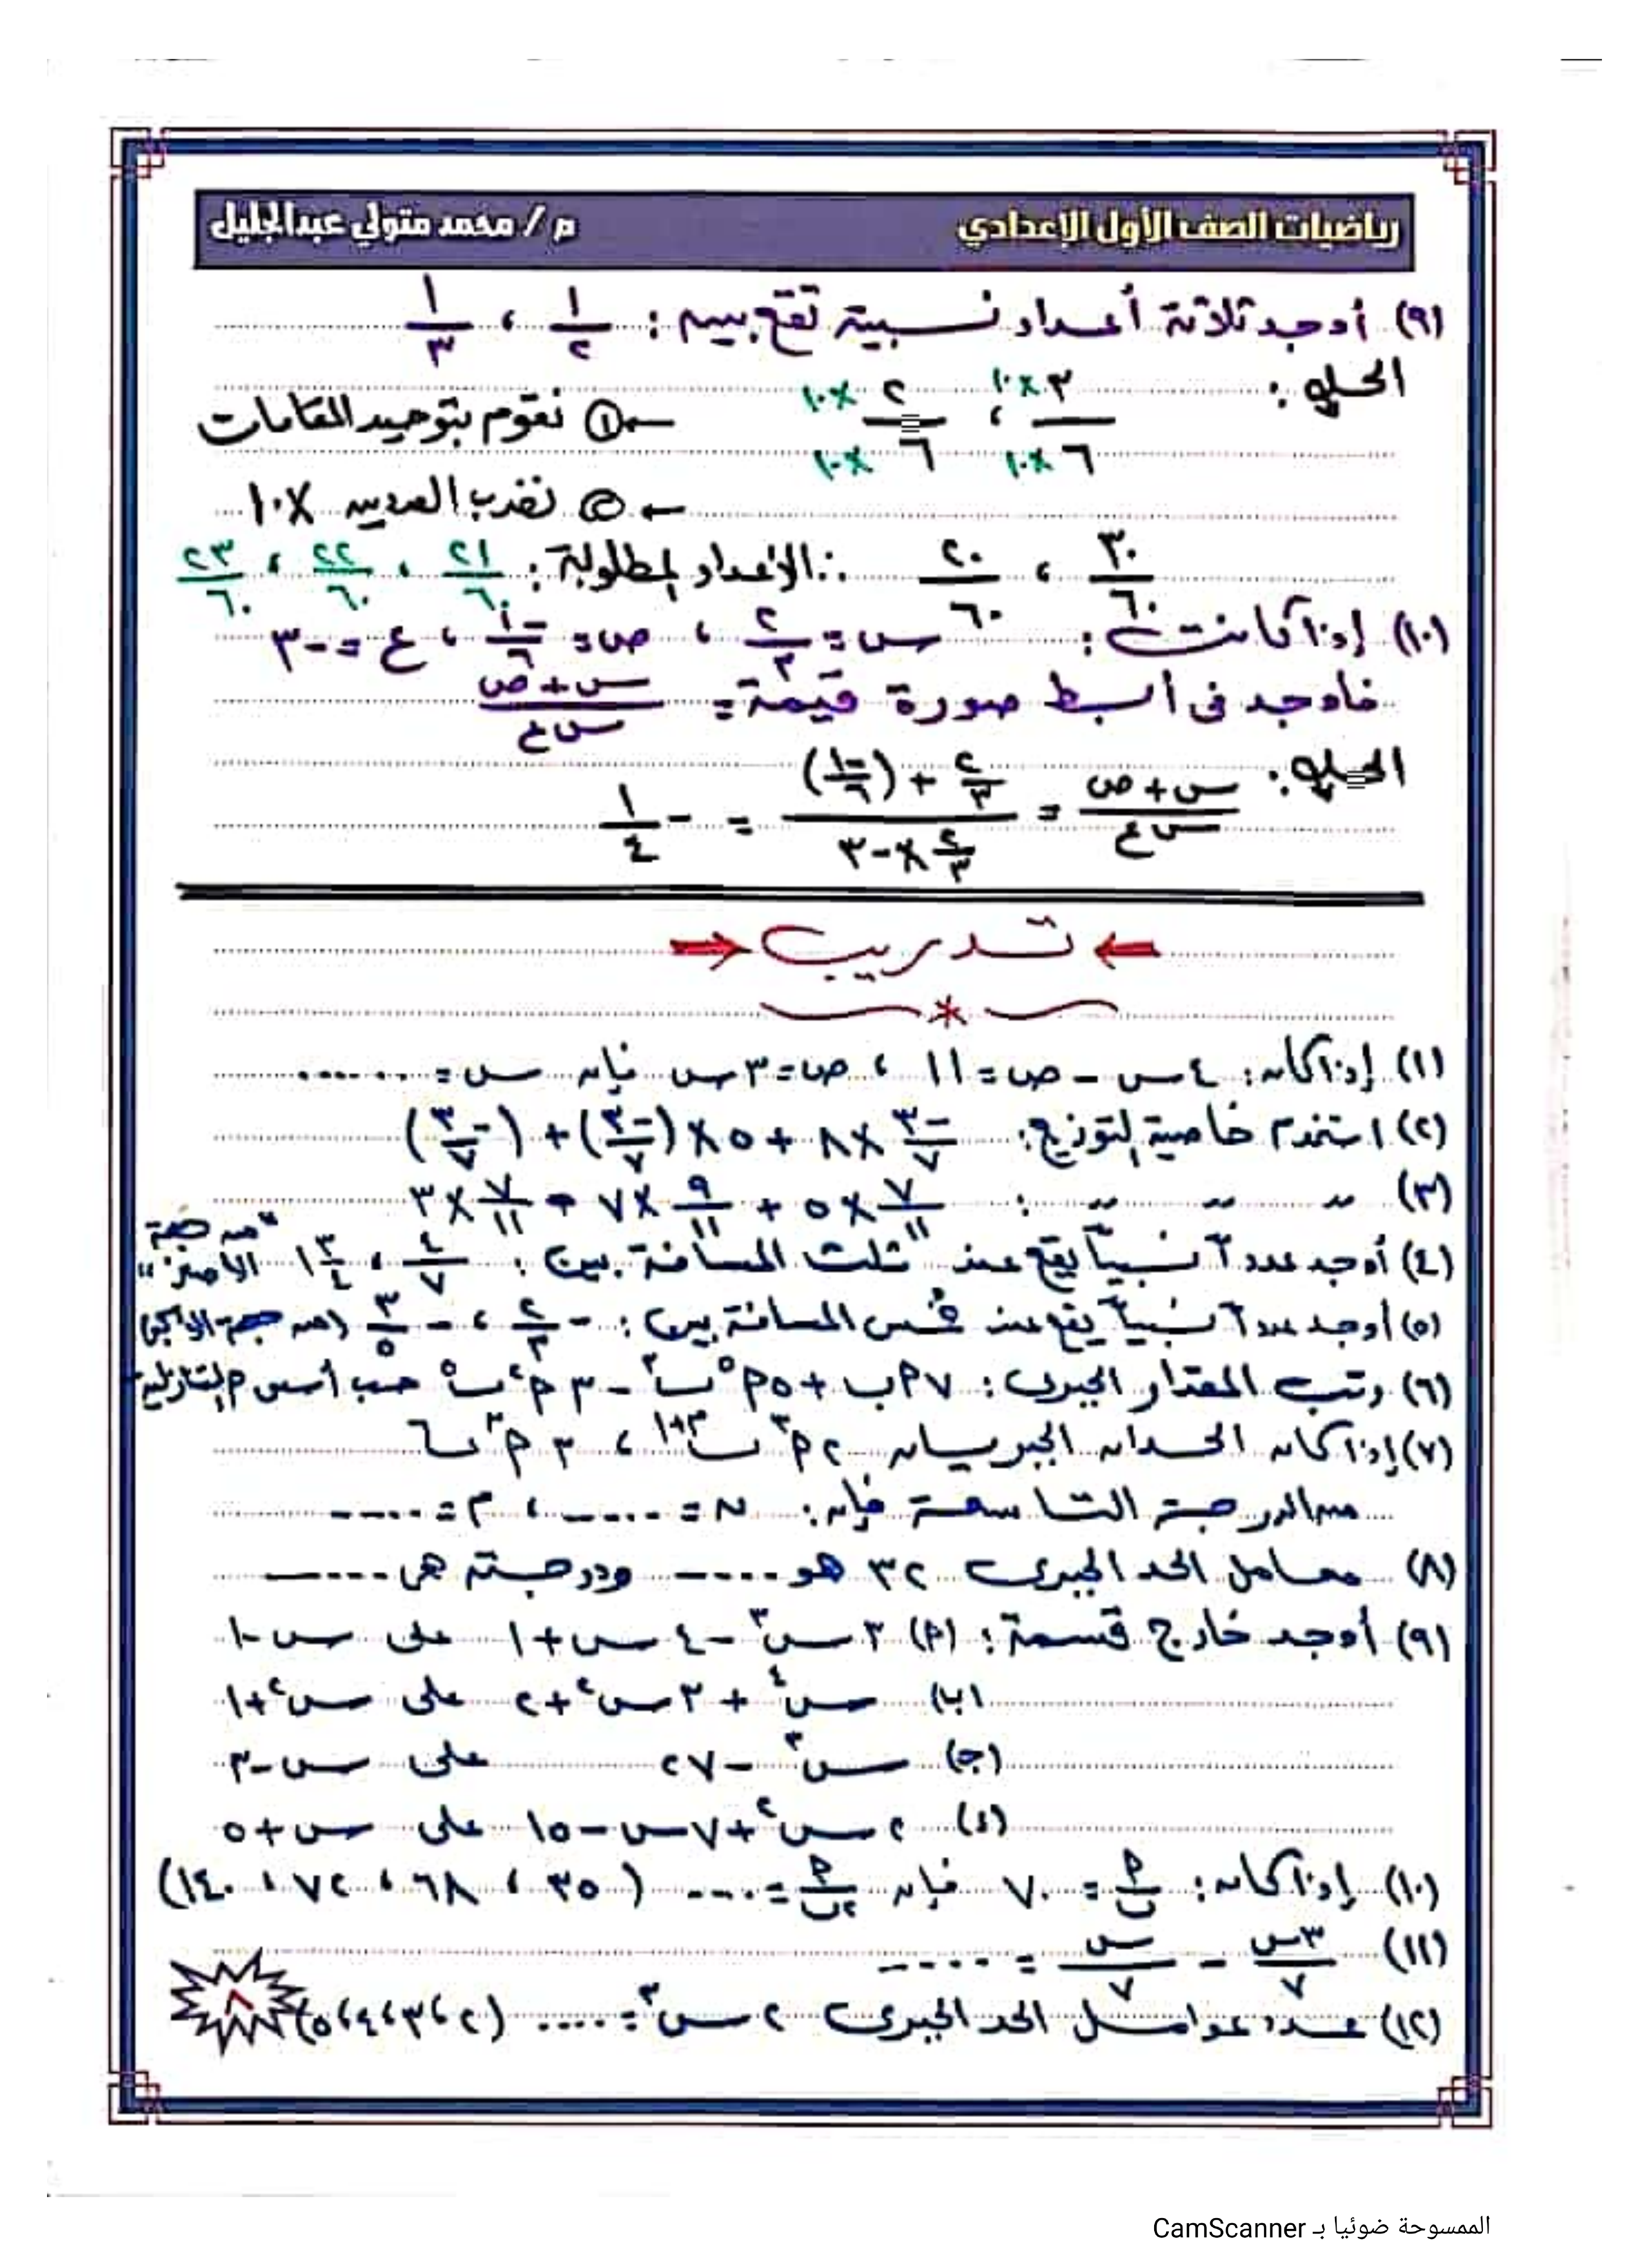 رياضيات الصف الأول الإعدادي م / محمد متولي عبدالجليل
(٩) أوجد ثلاثة أعداد نسبية تقع بين : ١/٢ ، ١/٣
الحل : ٣×١٠/٦×١٠ ، ٢×١٠/٦×١٠ ← ① نقوم بتوحيد المقامات
← ② نضرب العددين ×١٠
٣٠/٦٠ ، ٢٠/٦٠ ∴ الأعداد المطلوبة : ٢١/٦٠ ، ٢٢/٦٠ ، ٢٣/٦٠
(١٠) إذا كانت : س = ٢/٣ ، ص = -١/٦ ، ع = -٣
فأوجد فى أبسط صورة قيمة = س + ص/س ع
الحل : س + ص/س ع = ٢/٣ + (-١/٦)/٢/٣ × -٣ = - ١/٤
تدريب
(١) إذا كان : ٤ س - ص = ١١ ، ص = ٣ س فإن س = ......
(٢) استخدم خاصية التوزيع : -٣/٧ × ٨ + ٥ × (-٣/٧) + (-٣/٧)
(٣) " " " : ٧/١١ × ٥ + ٩/١١ × ٧ - ٧/١١ × ٣
(٤) أوجد عددآ نسبيآ يقع عند ثلث المسافة بين : ٤/٧ ، ١ ٣/٤ "من جهة الأصغر"
(٥) أوجد عددآ نسبيآ يقع عند خمس المسافة بين : - ٢/٣ ، - ٣/٥ (من جهة الأكبر)
(٦) رتب المقدار الجبرى : ٧ أ ب + ٥ أ⁵ ب³ - ٣ أ² ب⁵ حسب أسس أ التنازلية
(٧) إذا كان الحدان الجبريان ٢ أ³ ب^م+١ ، ٣ أ^ن ب٦
من الدرجة التاسعة فإن : ن = ..... ، م = .....
(٨) معامل الحد الجبرى ٣٢ هو ..... ودرجته هى .....
(٩) أوجد خارج قسمة : (أ) ٣ س³ - ٤ س + ١ على س - ١
(ب) س⁴ + ٣ س² + ٢ على س² + ١
(ج) س³ - ٢٧ على س - ٣
(د) ٢ س² + ٧ س - ١٥ على س + ٥
(١٠) إذا كان : أ/ب = ٧٠ فإن أ/٢ب = ..... (٣٥ ، ٦٨ ، ٧٢ ، ١٤٠)
(١١) ٣س/٧ - س/٧ = .....
(١٢) عدد عوامل الحد الجبرى ٢ س³ = ..... (٢ ، ٣ ، ٤ ، ٥)
٨
الممسوحة ضوئيا بـ CamScanner